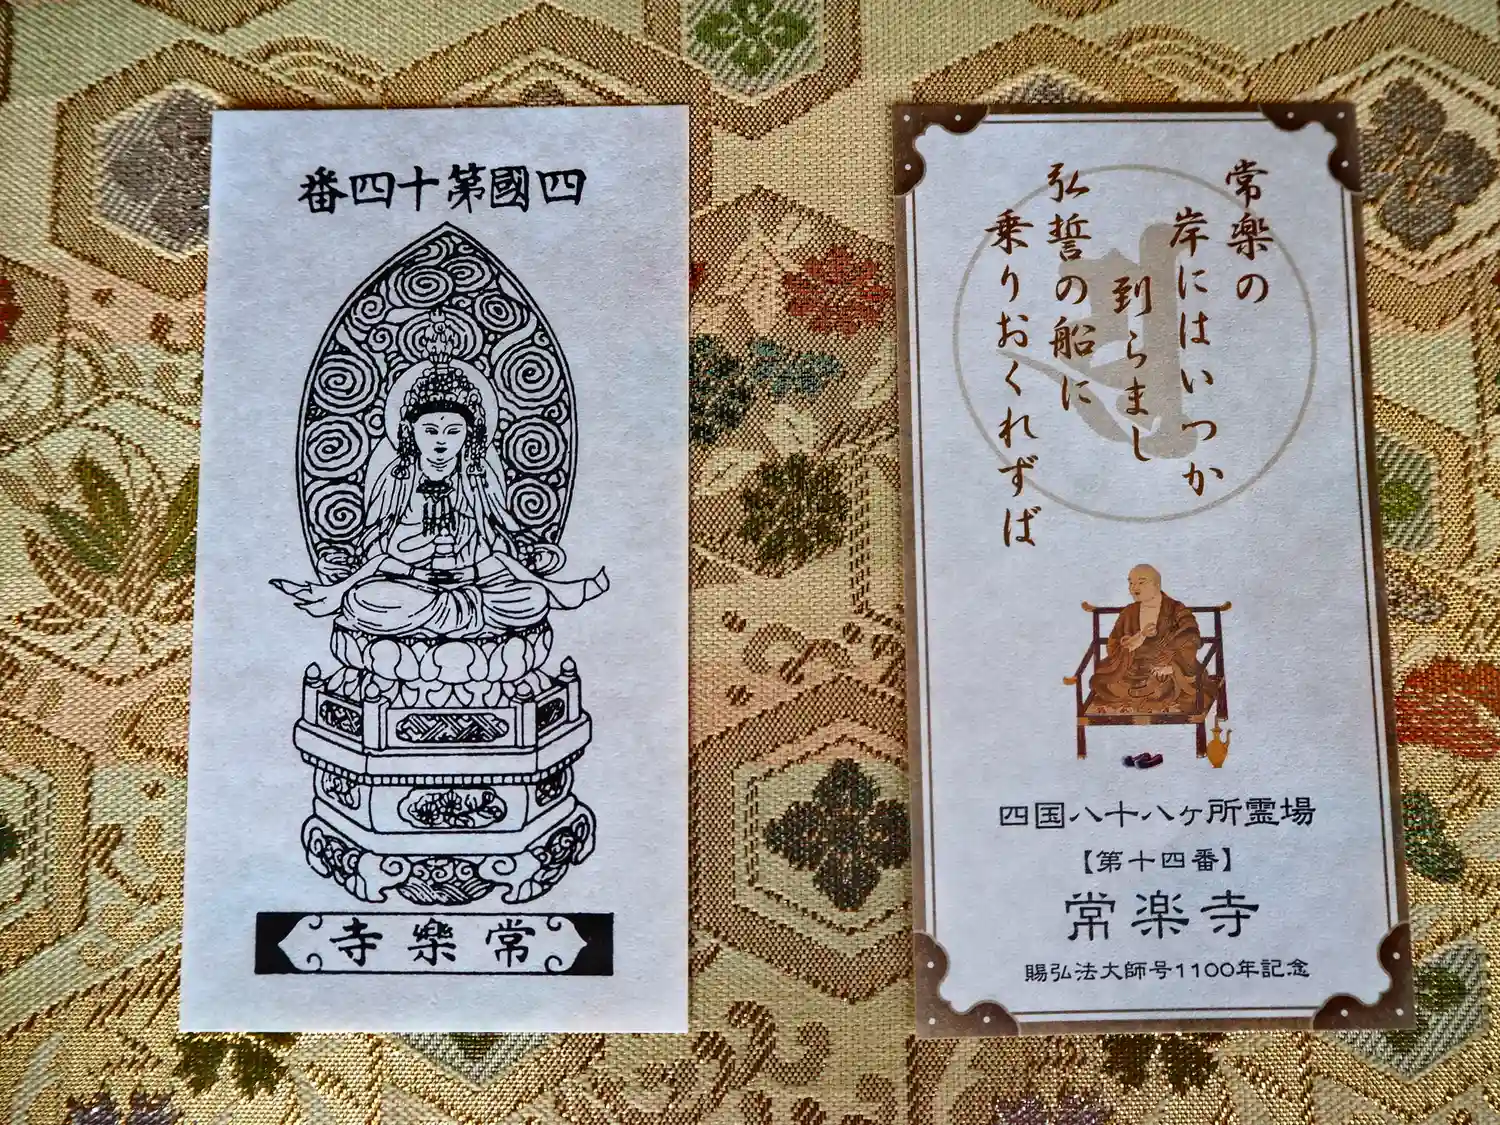 四國第十四番
常樂寺
常楽の
岸にはいつか
到らまし
弘誓の船に
乗りおくれずば
四国八十八ヶ所霊場
【第十四番】
常楽寺
賜弘法大師号1100年記念